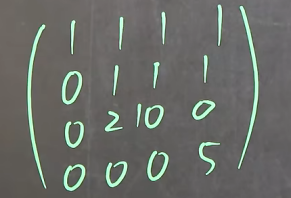 1 1 1 1
0 1 1 1
0 2 10 0
0 0 0 5